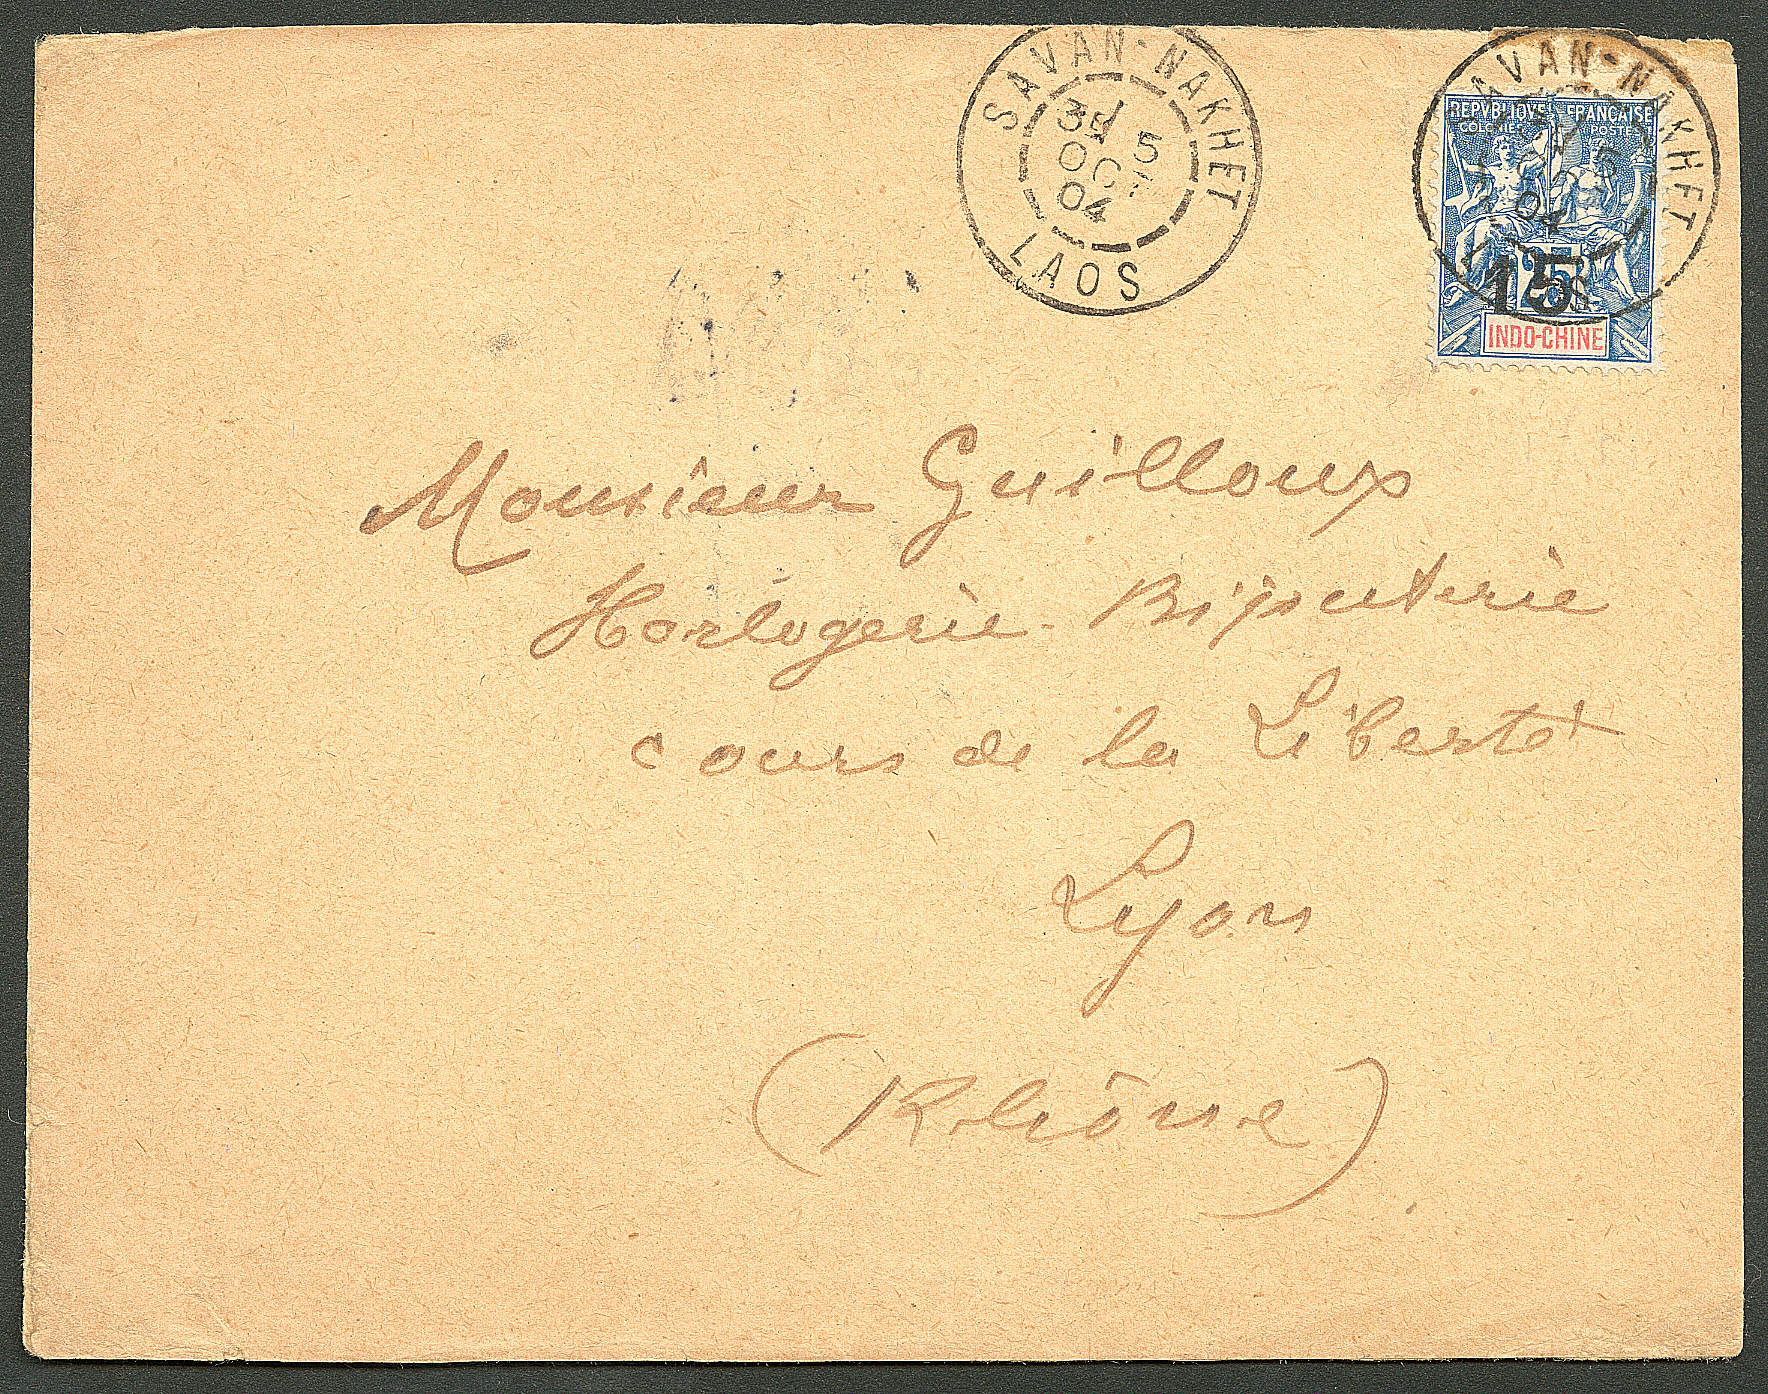 SAVAN-NAKHET
3E 5
OCT
04
LAOS
SAVAN-NAKHET
5
04
REPVBLIQVE FRANCAISE
COLONIES POSTES
15
INDO-CHINE
Monsieur Guilloux
Horlogerie - Bijouterie
cours de la Liberté
Lyon
(Rhône)